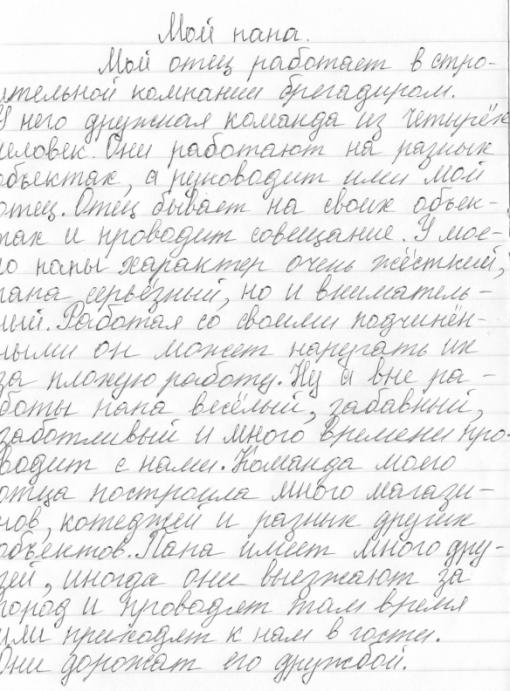 Мой папа.
Мой отец работает в стро-
ительной компании бригадиром.
У него дружная команда из четырёх
человек. Они работают на разных
объектах, а руководит ими мой
отец. Отец бывает на своих объек-
тах и проводит совещание. У мое-
го папы характер очень жёсткий,
папа серьёзный, но и вниматель-
ный. Работая со своими подчинён-
ными он может наругать их
за плохую работу. Ну а вне ра-
боты папа весёлый, забавный,
заботливый и много времени про-
водит с нами. Команда моего
отца построила много магази-
нов, котеджей и разных других
объектов. Папа имеет много дру-
зей, иногда они выезжают за
город и проводят там время
или приходят к нам в гости.
Они дорожат его дружбой.